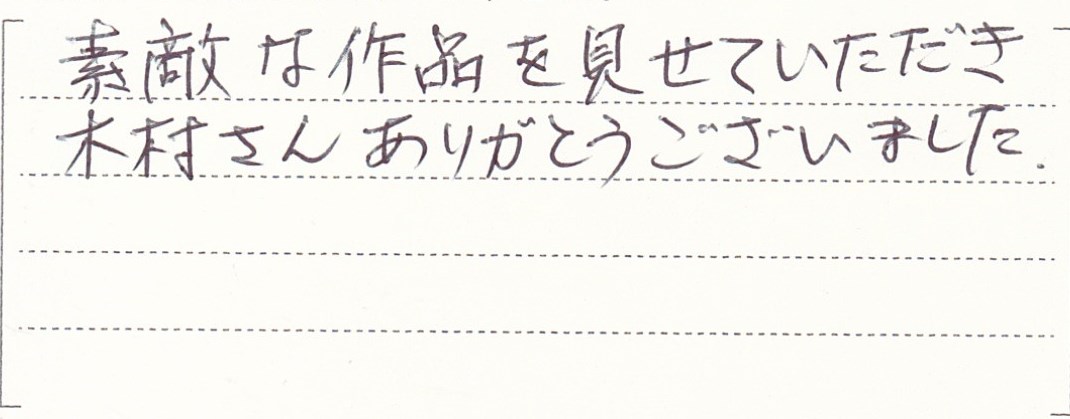 素敵な作品を見せていただき
木村さんありがとうございました.